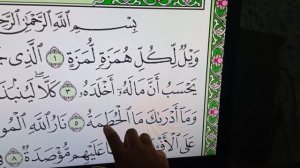 بِسْمِ اللَّهِ الرَّحْمَٰنِ الرَّحِ
وَيْلٌ لِّكُلِّ هُمَزَةٍ لُّمَزَةٍ ١ الَّذِي جَ
يَحْسَبُ أَنَّ مَالَهُ أَخْلَدَهُ ٣ كَلَّا لَيُنبَذَ
وَمَا أَدْرَىٰكَ مَا الْحُطَمَةُ ٥ نَارُ اللَّهِ الْمُو
عَلَى الْأَفْ عَلَيْهِم مُّؤْصَدَةٌ ٨